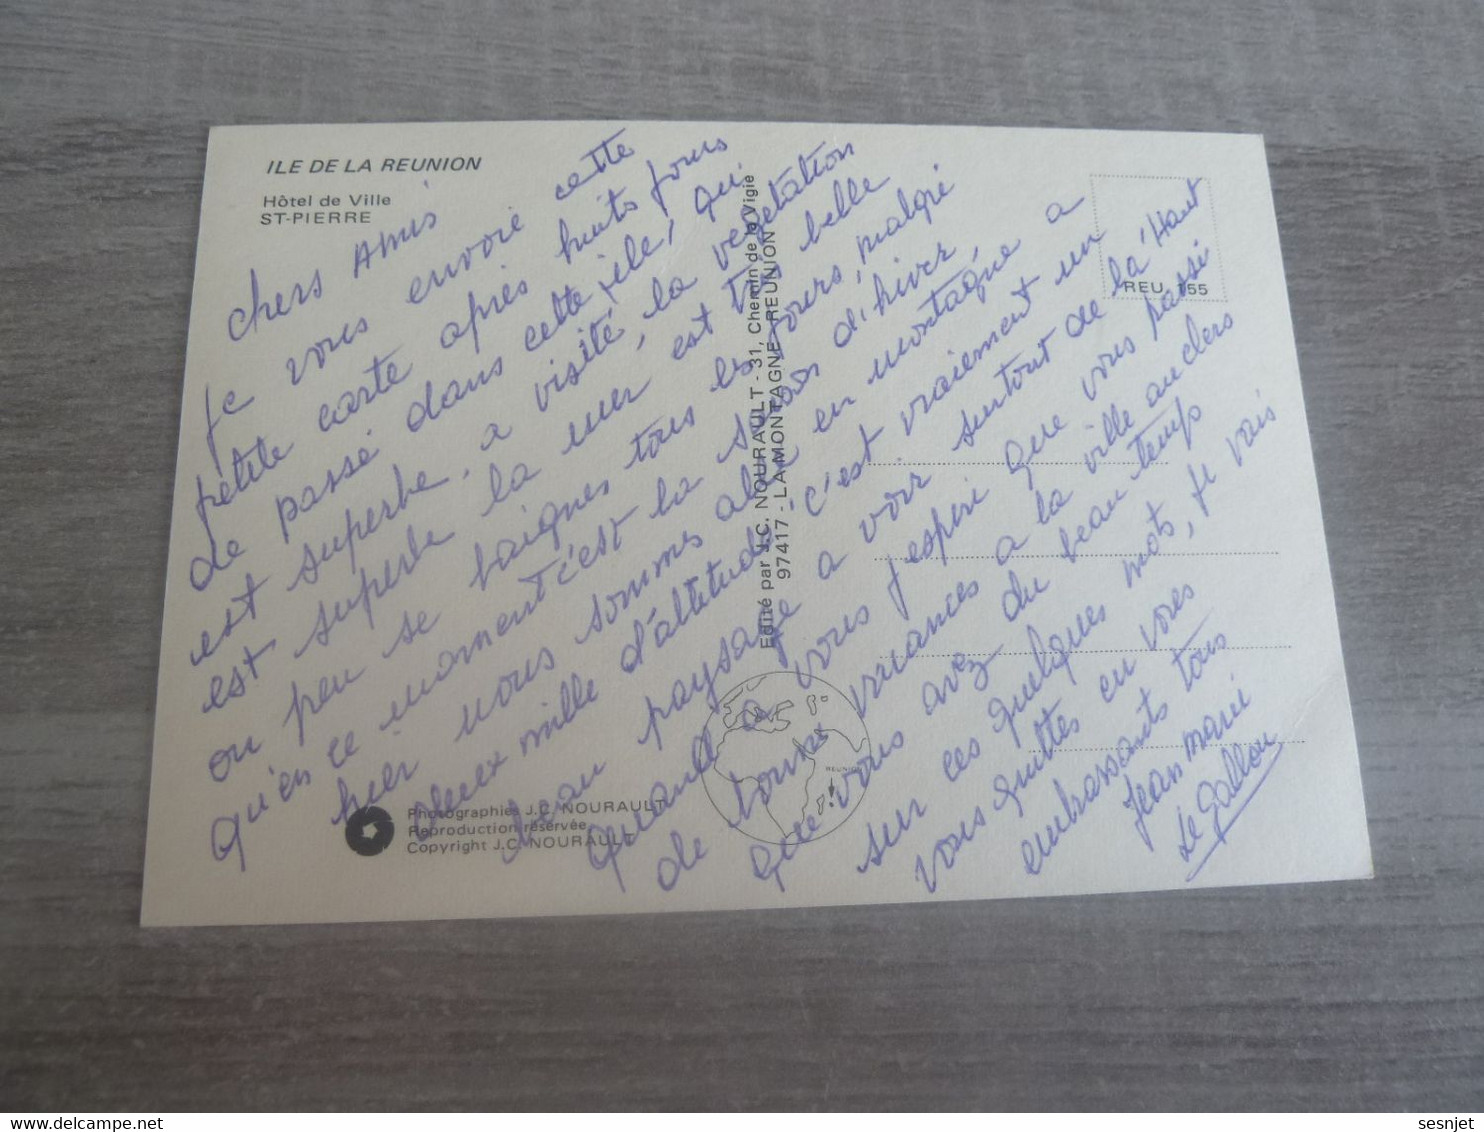 ILE DE LA REUNION
Hôtel de Ville
ST-PIERRE
chers Amis
je vous envoie cette
petite carte après huits jours
de passé dans cette île, qui
est superbe. a visité, la vegetation
est superbe la mer est très belle
ou peu se baignes tous les jours, malgré
qu'en ce moment c'est la saison d'hiver,
hier nous sommes aller en montagne a
deux mille d'altetude, c'est vraiement un
beau paysage a voir surtout de la'Haut
quand a vous j'espire que vous passé
de bonnes vacances a la ville auclers
que vous avez du beau temps
sur ces quelques mots, je vais
vous quittes en vores
embrassants tous
Jean marie
Le Gallou
Edité par J.C. NOURAULT - 31, Chemin de la Vigie
97417 - LA MONTAGNE - REUNION
REU 155
REUNION
Photographies J.C. NOURAULT
Reproduction réservée
Copyright J.C. NOURAULT
sesnjet
www.delcampe.net